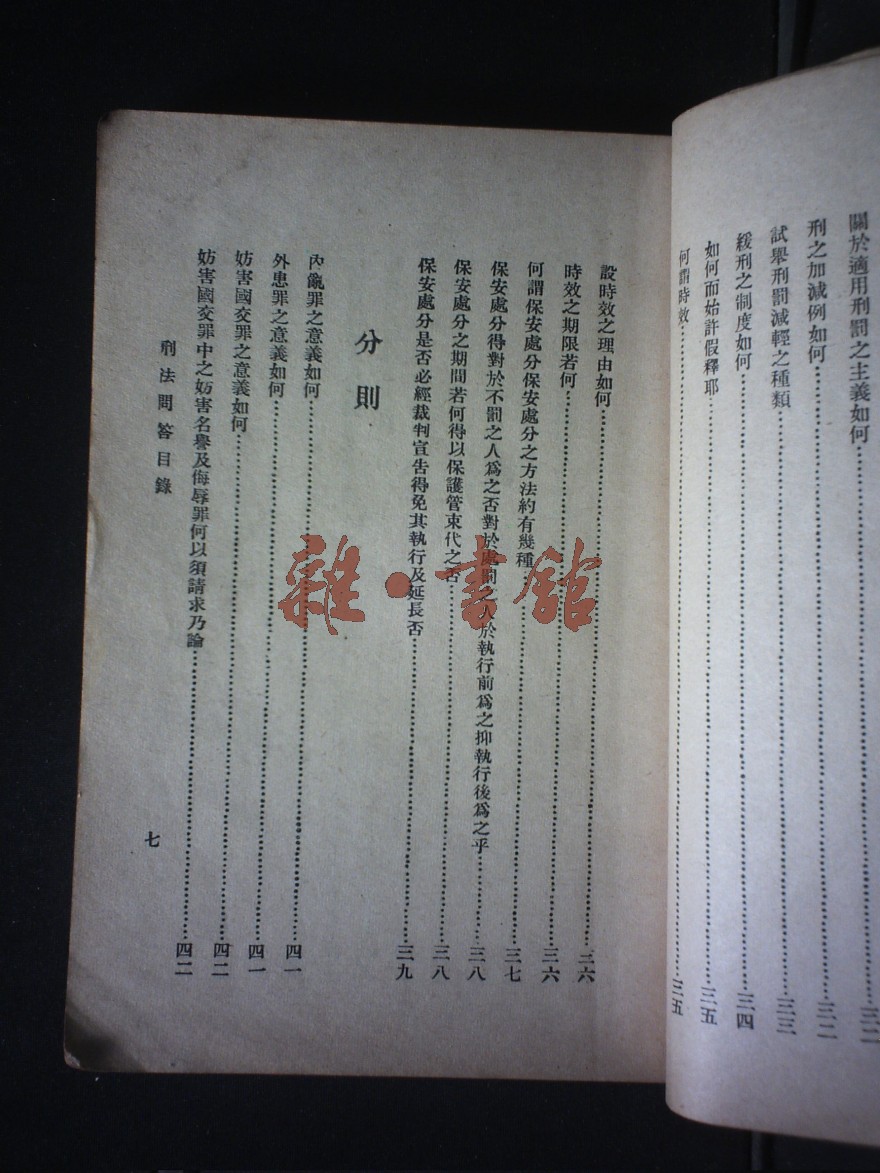 關於適用刑罰之主義如何……三二
刑之加減例如何……三二
試舉刑罰減輕之種類……三三
緩刑之制度如何……三四
如何而始許假釋耶……三五
何謂時效……三五
設時效之理由如何……三六
時效之期限若何……三六
何謂保安處分保安處分之方法約有幾種……三七
保安處分得對於不罰之人為之否對於處罰之人於執行前為之抑執行後為之乎……三八
保安處分之期間若何得以保護管束代之否……三八
保安處分是否必經裁判宣告得免其執行及延長否……三九
分則
內亂罪之意義如何……四一
外患罪之意義如何……四一
妨害國交罪之意義如何……四二
妨害國交罪中之妨害名譽及侮辱罪何以須請求乃論……四二
刑法問答目錄
七
雜·書館